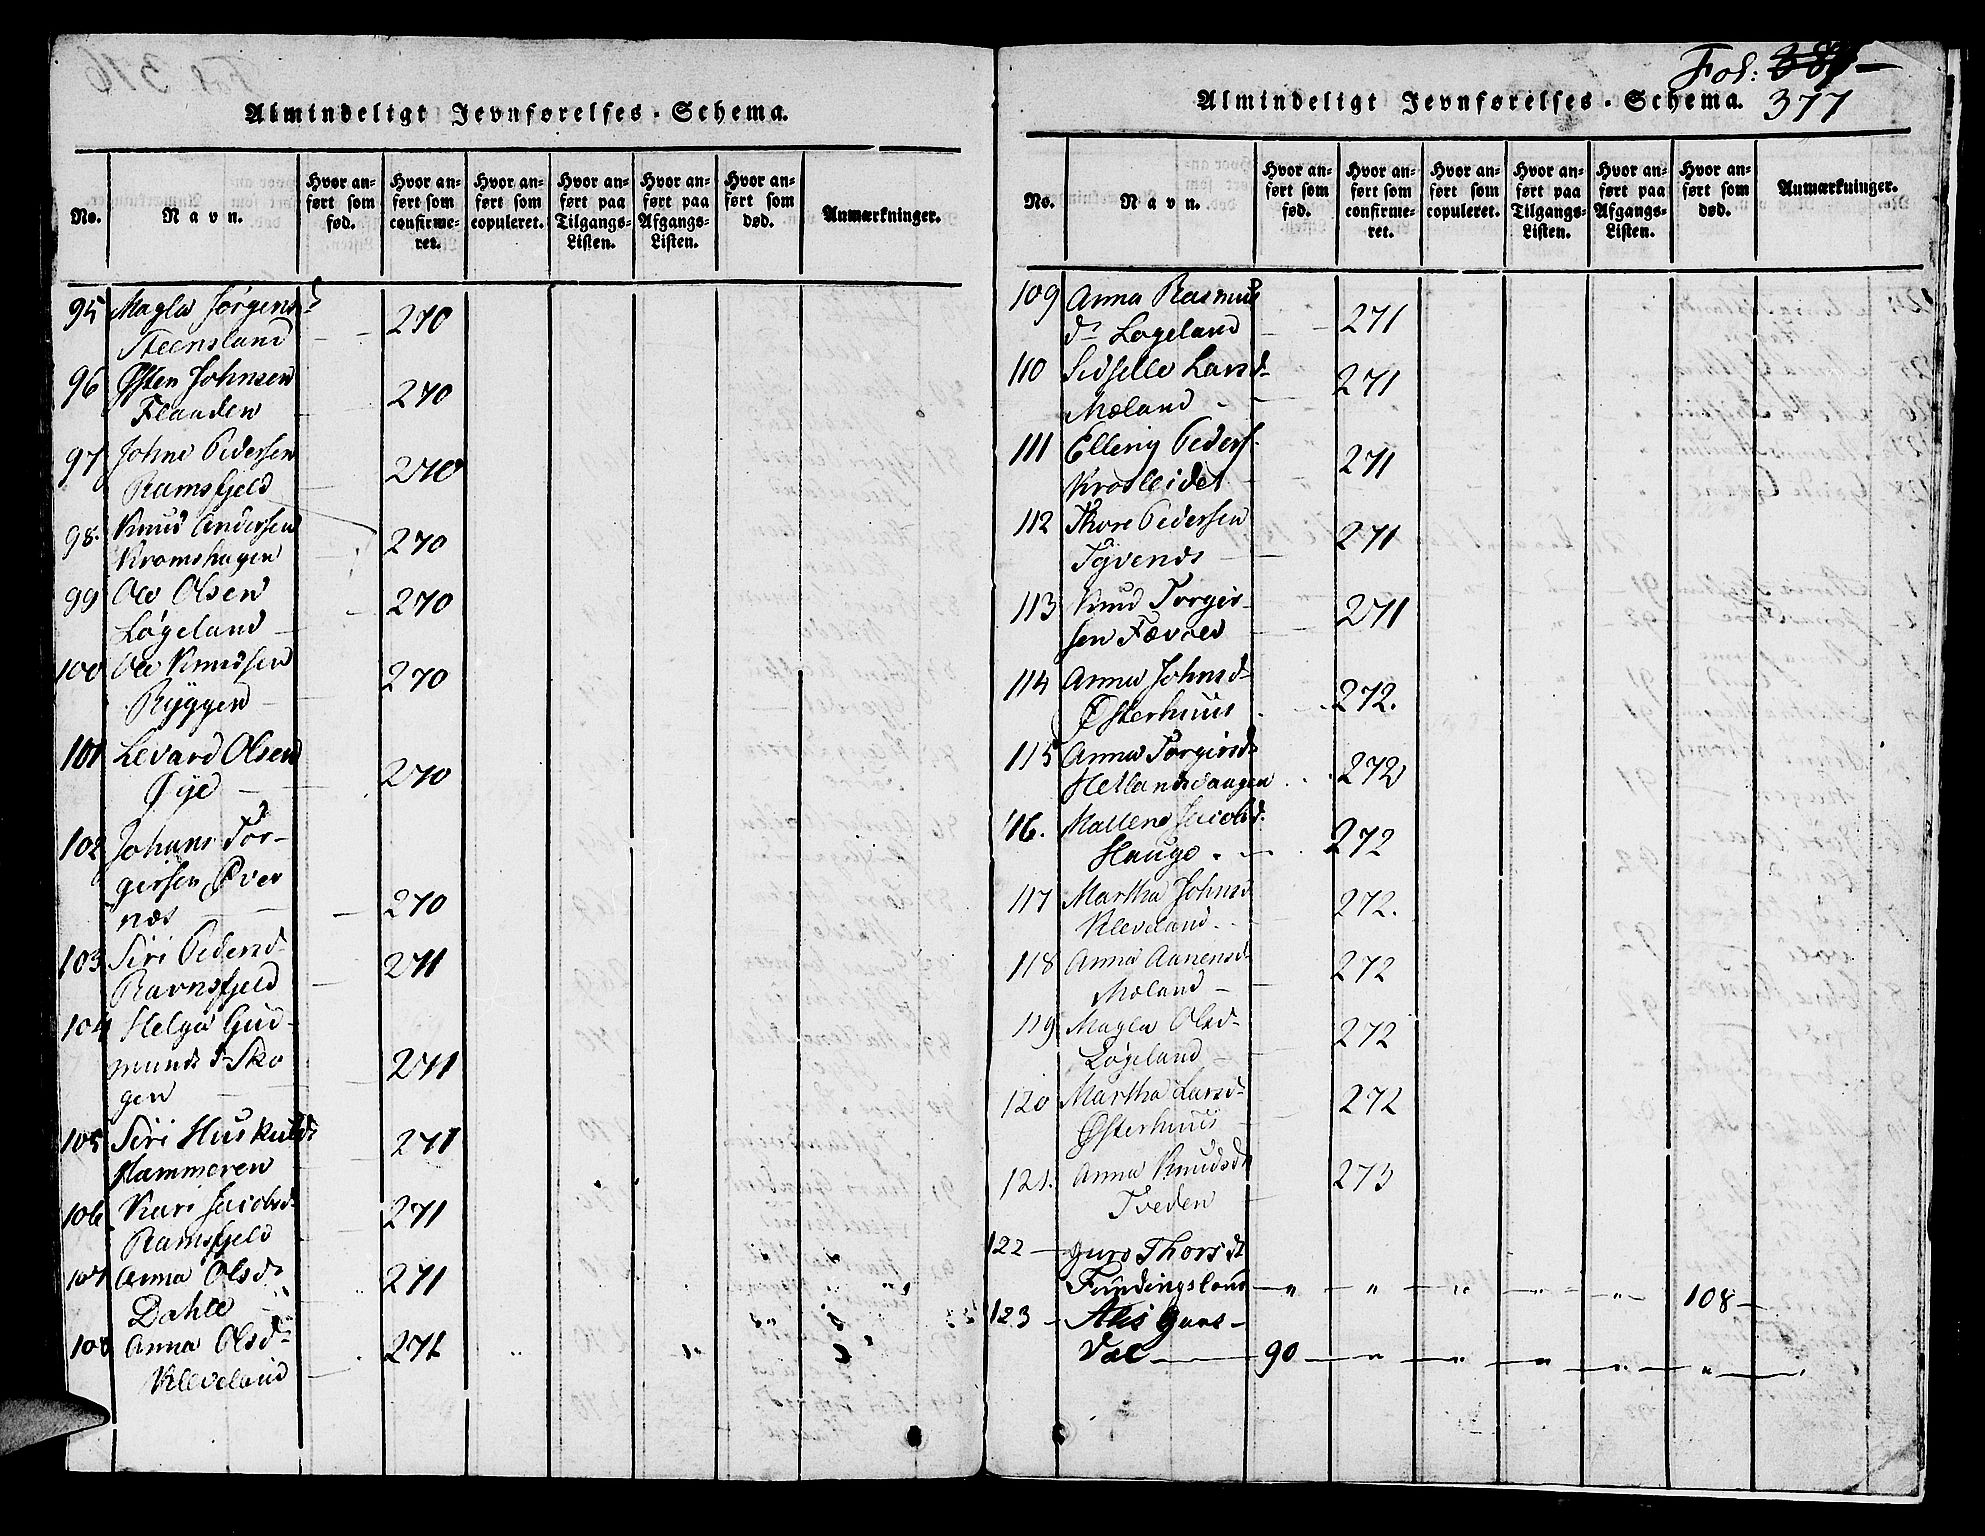 Almindeligt Jevnførelses-Schema.
No.
Navn.
Hvor anført som fød.
Hvor anført som confirmeret.
Hvor anført som copuleret.
Hvor anført paa Tilgangs-Listen.
Hvor anført paa Afgangs-Listen.
Hvor anført som død.
Anmærkninger.
95 Magla Jørgens d
Steensland — 270
96 Østen Johnsen
Flaaden — 270
97 Johne Pedersen
Ramsfjeld — 270
98. Knud Andersen
Kromshagen — 270
99 Ole Olsen
Løgeland — 270
100 Ole Knudsen
Ryggen — 270
101 Levard Olsen
Øye — 270
102 Johans Tor-
gersen Øver
næs — 270
103 Siri Pedersd
Ravnsfjeld — 271
104 Helga Gud-
munds d Sko
gen — 271
105 Siri Huskulds
Hammeren 271
106 Kari Jacobsd
Ramsfjeld 271
107 Anna Olsd
Dahle — 271
108 Anna Olsd
Kleveland — 271
Fol: 381
377
Almindeligt Jevnførelses-Schema.
No.
Navn.
Hvor anført som fød.
Hvor anført som confirmeret.
Hvor anført som copuleret.
Hvor anført paa Tilgangs-Listen.
Hvor anført paa Afgangs-Listen.
Hvor anført som død.
Anmærkninger.
109 Anna Rasmus
d Løgeland — 271
110 Sidselle Larsd
Mæland — 271
111 Ellevig Peders
Krosleidet — 271
112 Thore Pedersen
Tyvends — 271
113 Knud Torger-
sen Fævold — 271
114 Anna Johnsd
Østerhuus — 272.
115 Anna Torgersd
Hetlandsvaagen 272
116. Mallene Jacobsd
Hauge — 272
117 Martha Johnsd
Kleveland — 272.
118 Anna Aanensd
Mæland — 272
119 Magla Olsd
Løgeland — 272
120 Martha Larsd
Østerhuus — 272
121. Anna Knudsd
Tveden — 273
122 — Guro Thorsd
Fundingsland — „ — „ — „ — „ — „ — 108 —
123 — Aas
Dal — 90 — „ — „ — „ — „ — „ —